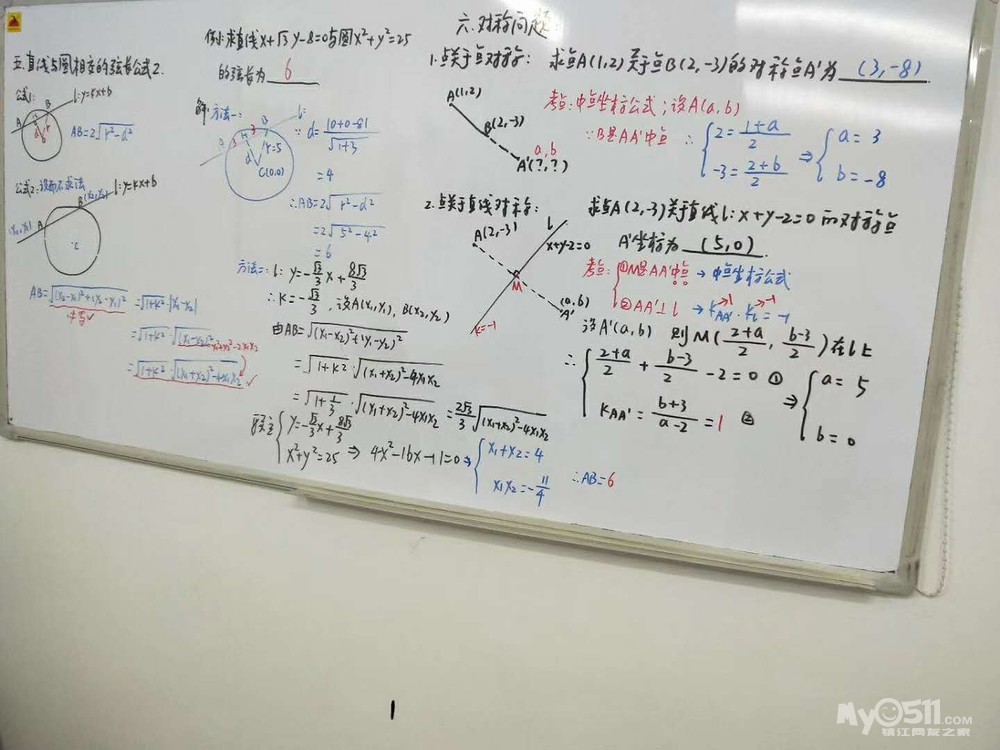 五.直线与圆相交的弦长公式2.
公式1:
l:y=kx+b
A
B
d
r
AB=2√(r²-d²)
公式2:设而不求法
B(x₂,y₂)
l:y=kx+b
A
(x₁,y₁)
AB=√((x₂-x₁)²+(y₂-y₁)²)=√(1+k²)·|x₁-x₂|
=√(1+k²)·√((x₁-x₂)²)
x₁²+x₂²-2x₁x₂
=√(1+k²)·√((x₁+x₂)²-4x₁x₂)
例:求直线x+√3y-8=0与圆x²+y²=25
的弦长为 6
解:方法一:
l:
A
3
H
3
B
d
r=5
C(0,0)
∵d=|0+0-8|/√(1+3)
=4
∴AB=2√(r²-d²)
=2√(5²-4²)
=6
方法二:l:y=-√3/3x+8√3/3
∴k=-√3/3,设A(x₁,y₁),B(x₂,y₂)
由AB=√((x₁-x₂)²+(y₁-y₂)²)
=√(1+k²)·√((x₁+x₂)²-4x₁x₂)
=√(1+1/3)·√((x₁+x₂)²-4x₁x₂)=2√3/3√((x₁+x₂)²-4x₁x₂)
联立{y=-√3/3x+8√3/3
x²+y²=25⇒4x²-16x-11=0⇒{x₁+x₂=4
x₁x₂=-11/4
∴AB=6
六.对称问题
1.点关于点对称: 求点A(1,2)关于点B(2,-3)的对称点A'为 (3,-8)
A(1,2)
B(2,-3)
a,b
A'(?,?)
考点:中点坐标公式;设A(a,b)
∵B是AA'中点 ∴{2=(1+a)/2
-3=(2+b)/2
⇒{a=3
b=-8
2.点关于直线对称: 求点A(2,-3)关于直线l:x+y-2=0的对称点
A'坐标为 (5,0).
A(2,-3)
l
x+y-2=0
M
(a,b)
A'
k=-1
考点:{①M是AA'中点→中点坐标公式
②AA'⊥l→k_AA'·k_l=-1
1
-1
设A'(a,b) 则M((2+a)/2,(b-3)/2)在l上
∴{(2+a)/2+(b-3)/2-2=0 ①
k_AA'=(b+3)/(a-2)=1 ②
⇒{a=5
b=0
My0511.COM
镇江网友之家